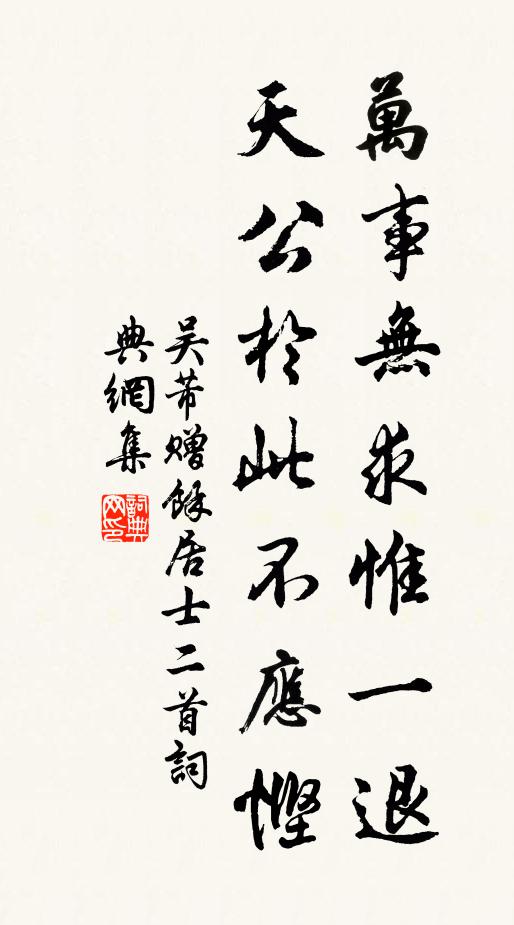 萬事無求惟一退
天公於此不應慳
吴芾贈餘居士二首詞
典網集
詞典网印